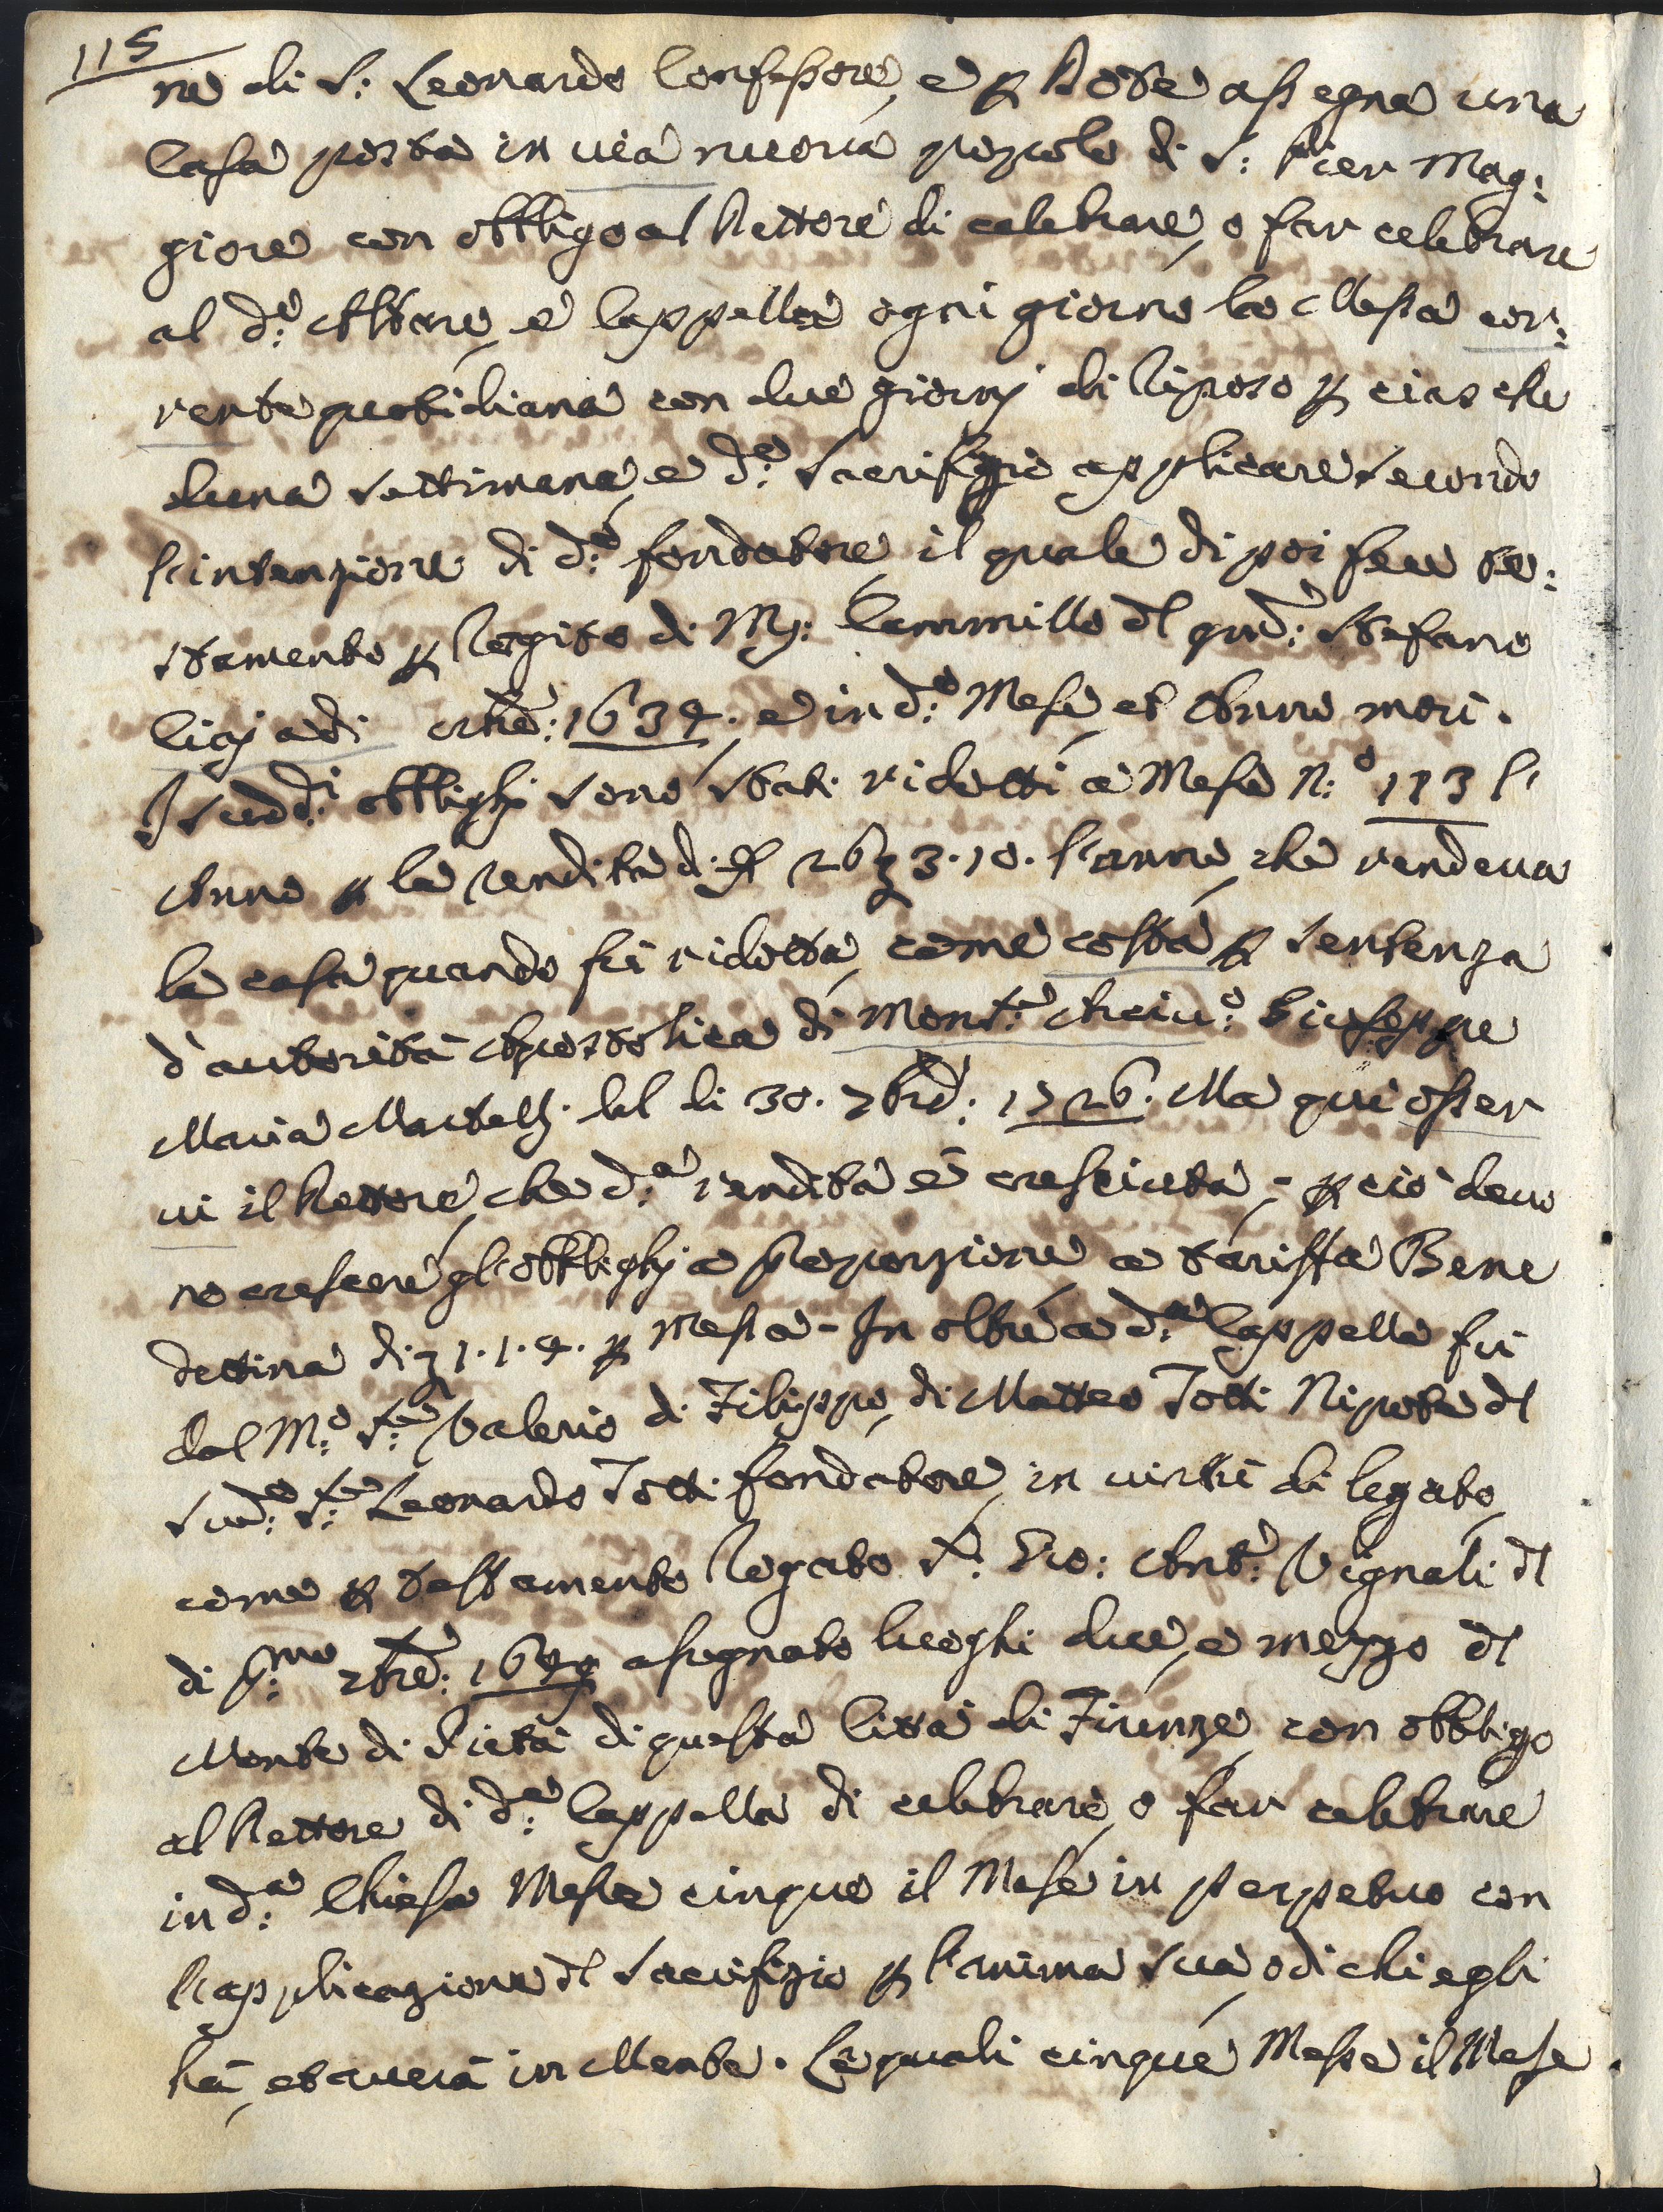 115
ne di S: Leonardo Confessore, e p Dote assegna una
Casa posta in via nuova popolo di S: Pier Mag:
giore con obbligo al Rettore di celebrare, o far celebrare
al d:º Altare, e Cappella ogni giorno la Messa cor:
rente quotidiana con due giorni di riposo p ciasche
duna settimana, e d:º Sacrifizio applicare secondo
l'intenzione di d:º fondatore, il quale di poi fece te:
stamento p rogito di M: Cammillo dl qnd: Stefano
Ligi adi 8bre: 1634. e in d:º Mese, et Anno morì.
I sudd:i obblighi sono stati ridotti a Messe N:º 113 l'
Anno p la rendita di 26 3.10. l'anno, che rendeva
la casa quando fù ridotta, come costa p sentenza
d'autorità Apostolica di Mons:re Arciv:º Giuseppe
Maria Martelli del di 30. 7bre: 1726. Ma qui osser
vi il Rettore, che d:a rendita è cresciuta, - p ciò devo
no crescere gl'obblighi a proporzione a tariffa Bene
dettina di 1.1.4. p Messa - In oltre a d:a Cappella fù
dal M:º S:re Valerio di Filippo, di Matteo Totti Nipote dl
Sud:º S:re Leonardo Totti fondatore, in virtù di legato,
come p testamento rogato S:r Gio: Ant:º Vignali dl
di p:mo 7bre: assegnato luoghi due, e mezzo dl
Monte di Pietà di questa Città di Firenze, con obbligo
al Rettore di d:a Cappella di celebrare, o far celebrare
in d:a Chiesa Messe cinque il Mese in perpetuo con
l'applicazione dl Sacrifizio p l'anima sua, o di chi egli
hà, et averà in Mente. Le quali cinque Messe il Mese